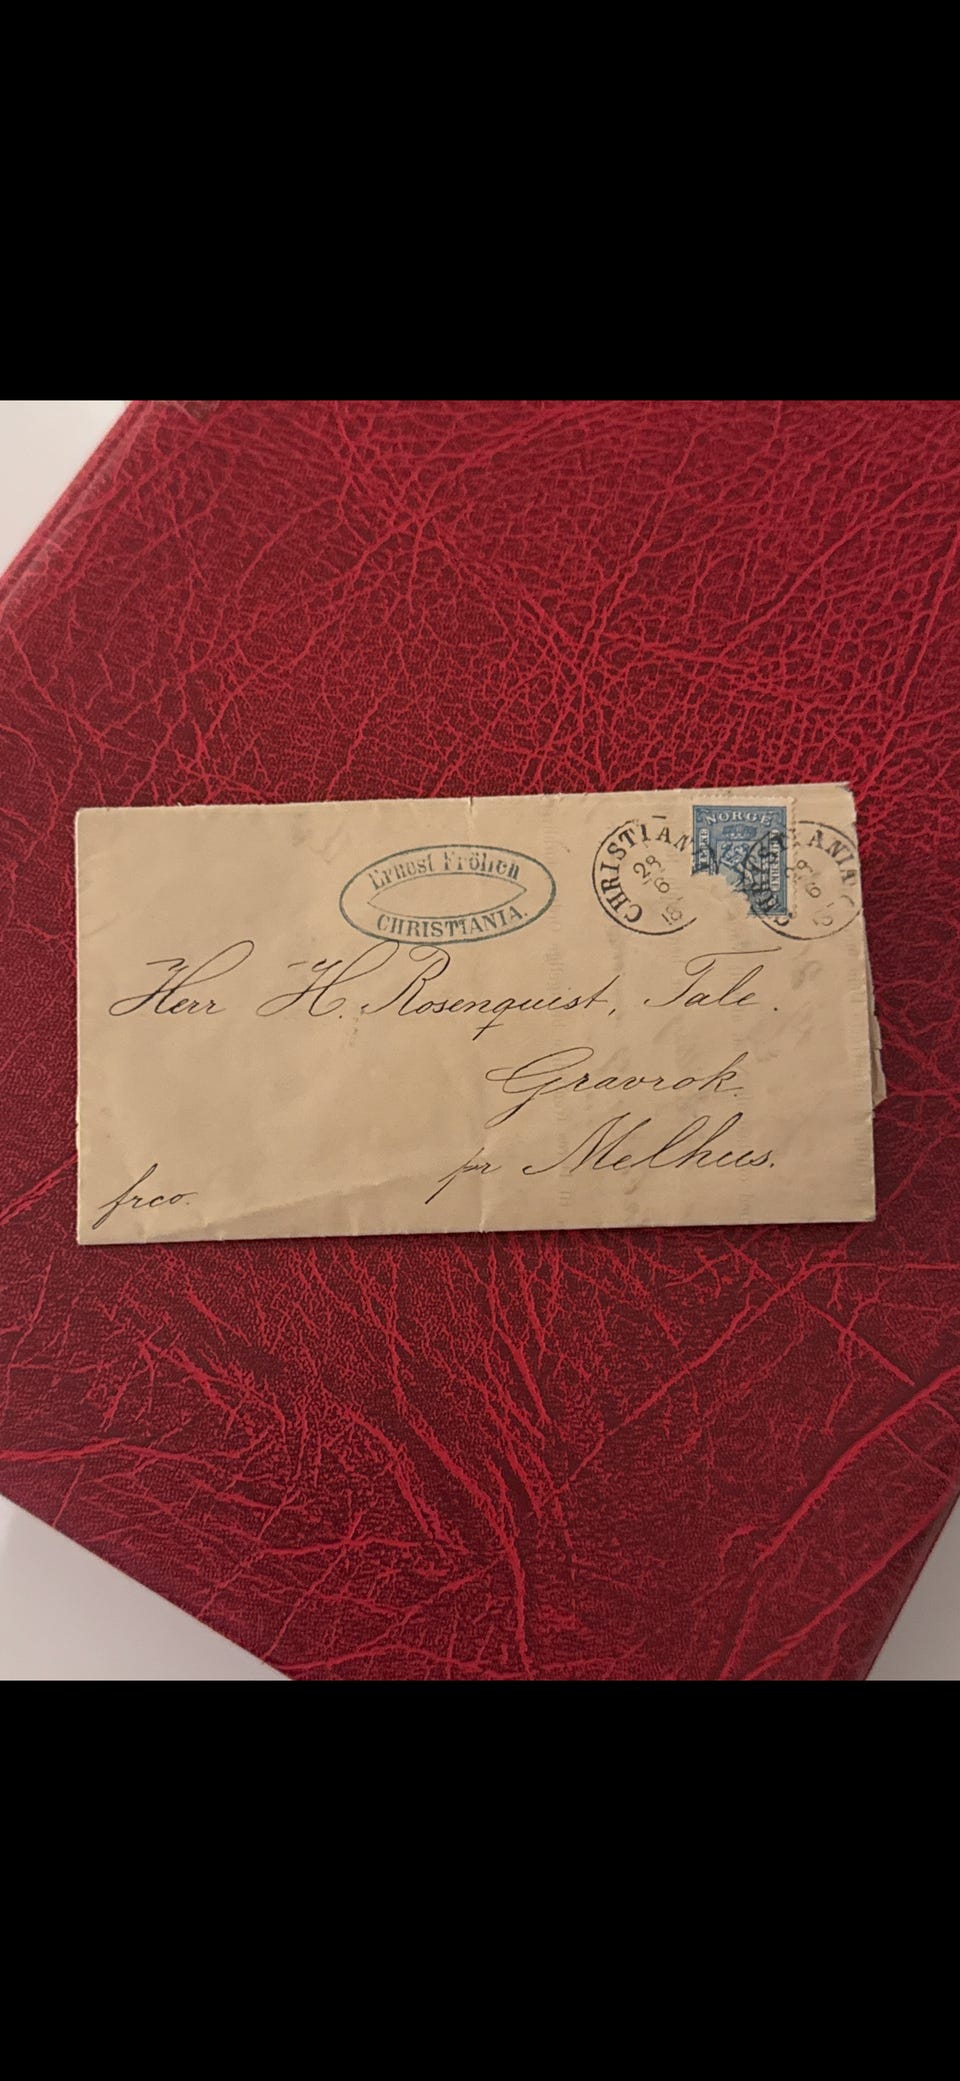 Ernest Frölich
CHRISTIANIA.
NORGE
CHRISTIANIA
28
6
CHRISTIANIA
28
6
Herr H. Rosenquist, Tale.
Gravrok.
pr Melhus.
frco.